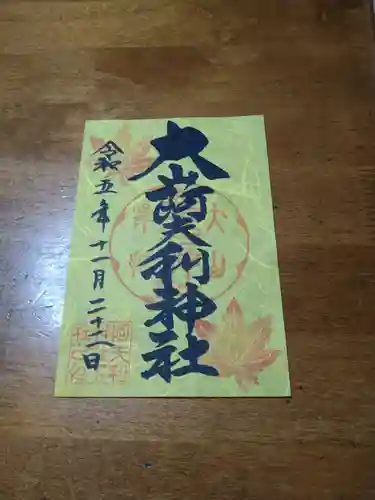 大山阿夫利神社
令和五年十一月二十二日
大山